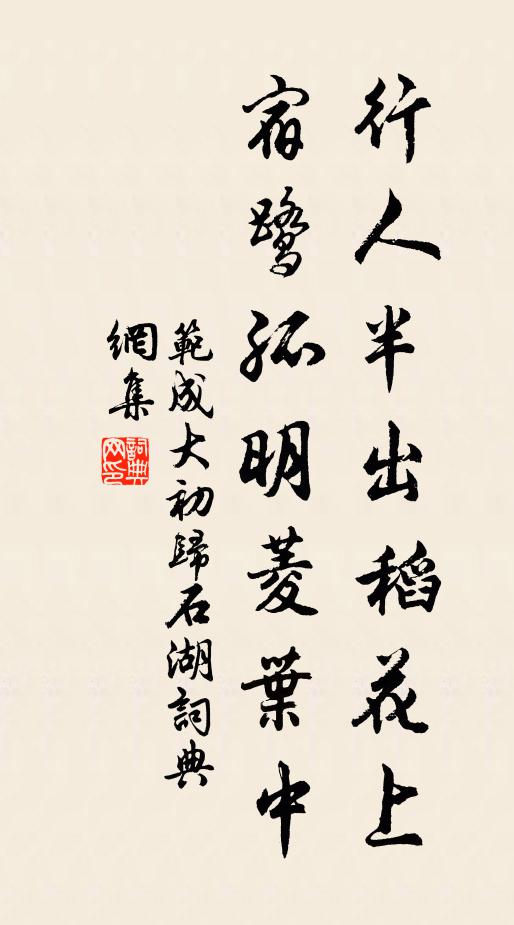 行人半出稻花上
宿鹭孤明菱葉中
範成大初歸石湖詞典
網集
詞典
网印